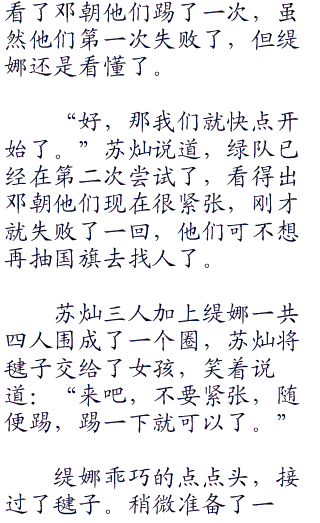 看了邓朝他们踢了一次，虽
然他们第一次失败了，但缇
娜还是看懂了。
“好，那我们就快点开
始了。”苏灿说道，绿队已
经在第二次尝试了，看得出
邓朝他们现在很紧张，刚才
就失败了一回，他们可不想
再抽国旗去找人了。
苏灿三人加上缇娜一共
四人围成了一个圈，苏灿将
毽子交给了女孩，笑着说
道：“来吧，不要紧张，随
便踢，踢一下就可以了。”
缇娜乖巧的点点头，接
过了毽子。稍微准备了一